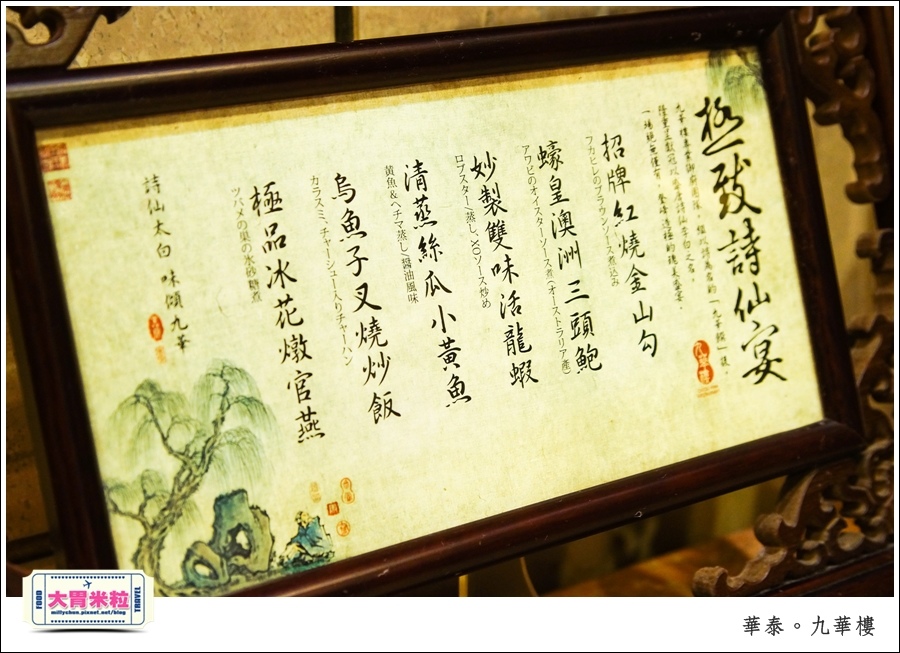 極致詩仙宴
招牌紅燒金山勾
フカヒレのブラウンソース煮込み
蠔皇澳洲三頭鮑
アワビのオイスターソース煮(オーストラリア産)
妙製雙味活龍蝦
ロブスター/蒸し、XOソース炒め
清蒸絲瓜小黃魚
黄魚&ヘチマ蒸し/醤油風味
烏魚子叉燒炒飯
カラスミ、チャーシュー入りチャーハン
極品冰花燉官燕
ツバメの巣の氷砂糖煮
詩仙太白 味傾九華
FOOD
大胃米粒
TRAVEL
millychun.pixnet.net/blog
華泰。九華樓